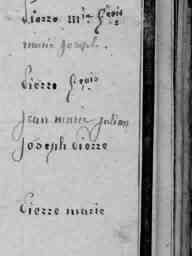 Pierre m^ie f^çois
marie Joseph.
Pierre f^çois
jean marie julien
Joseph Pierre
Pierre marie